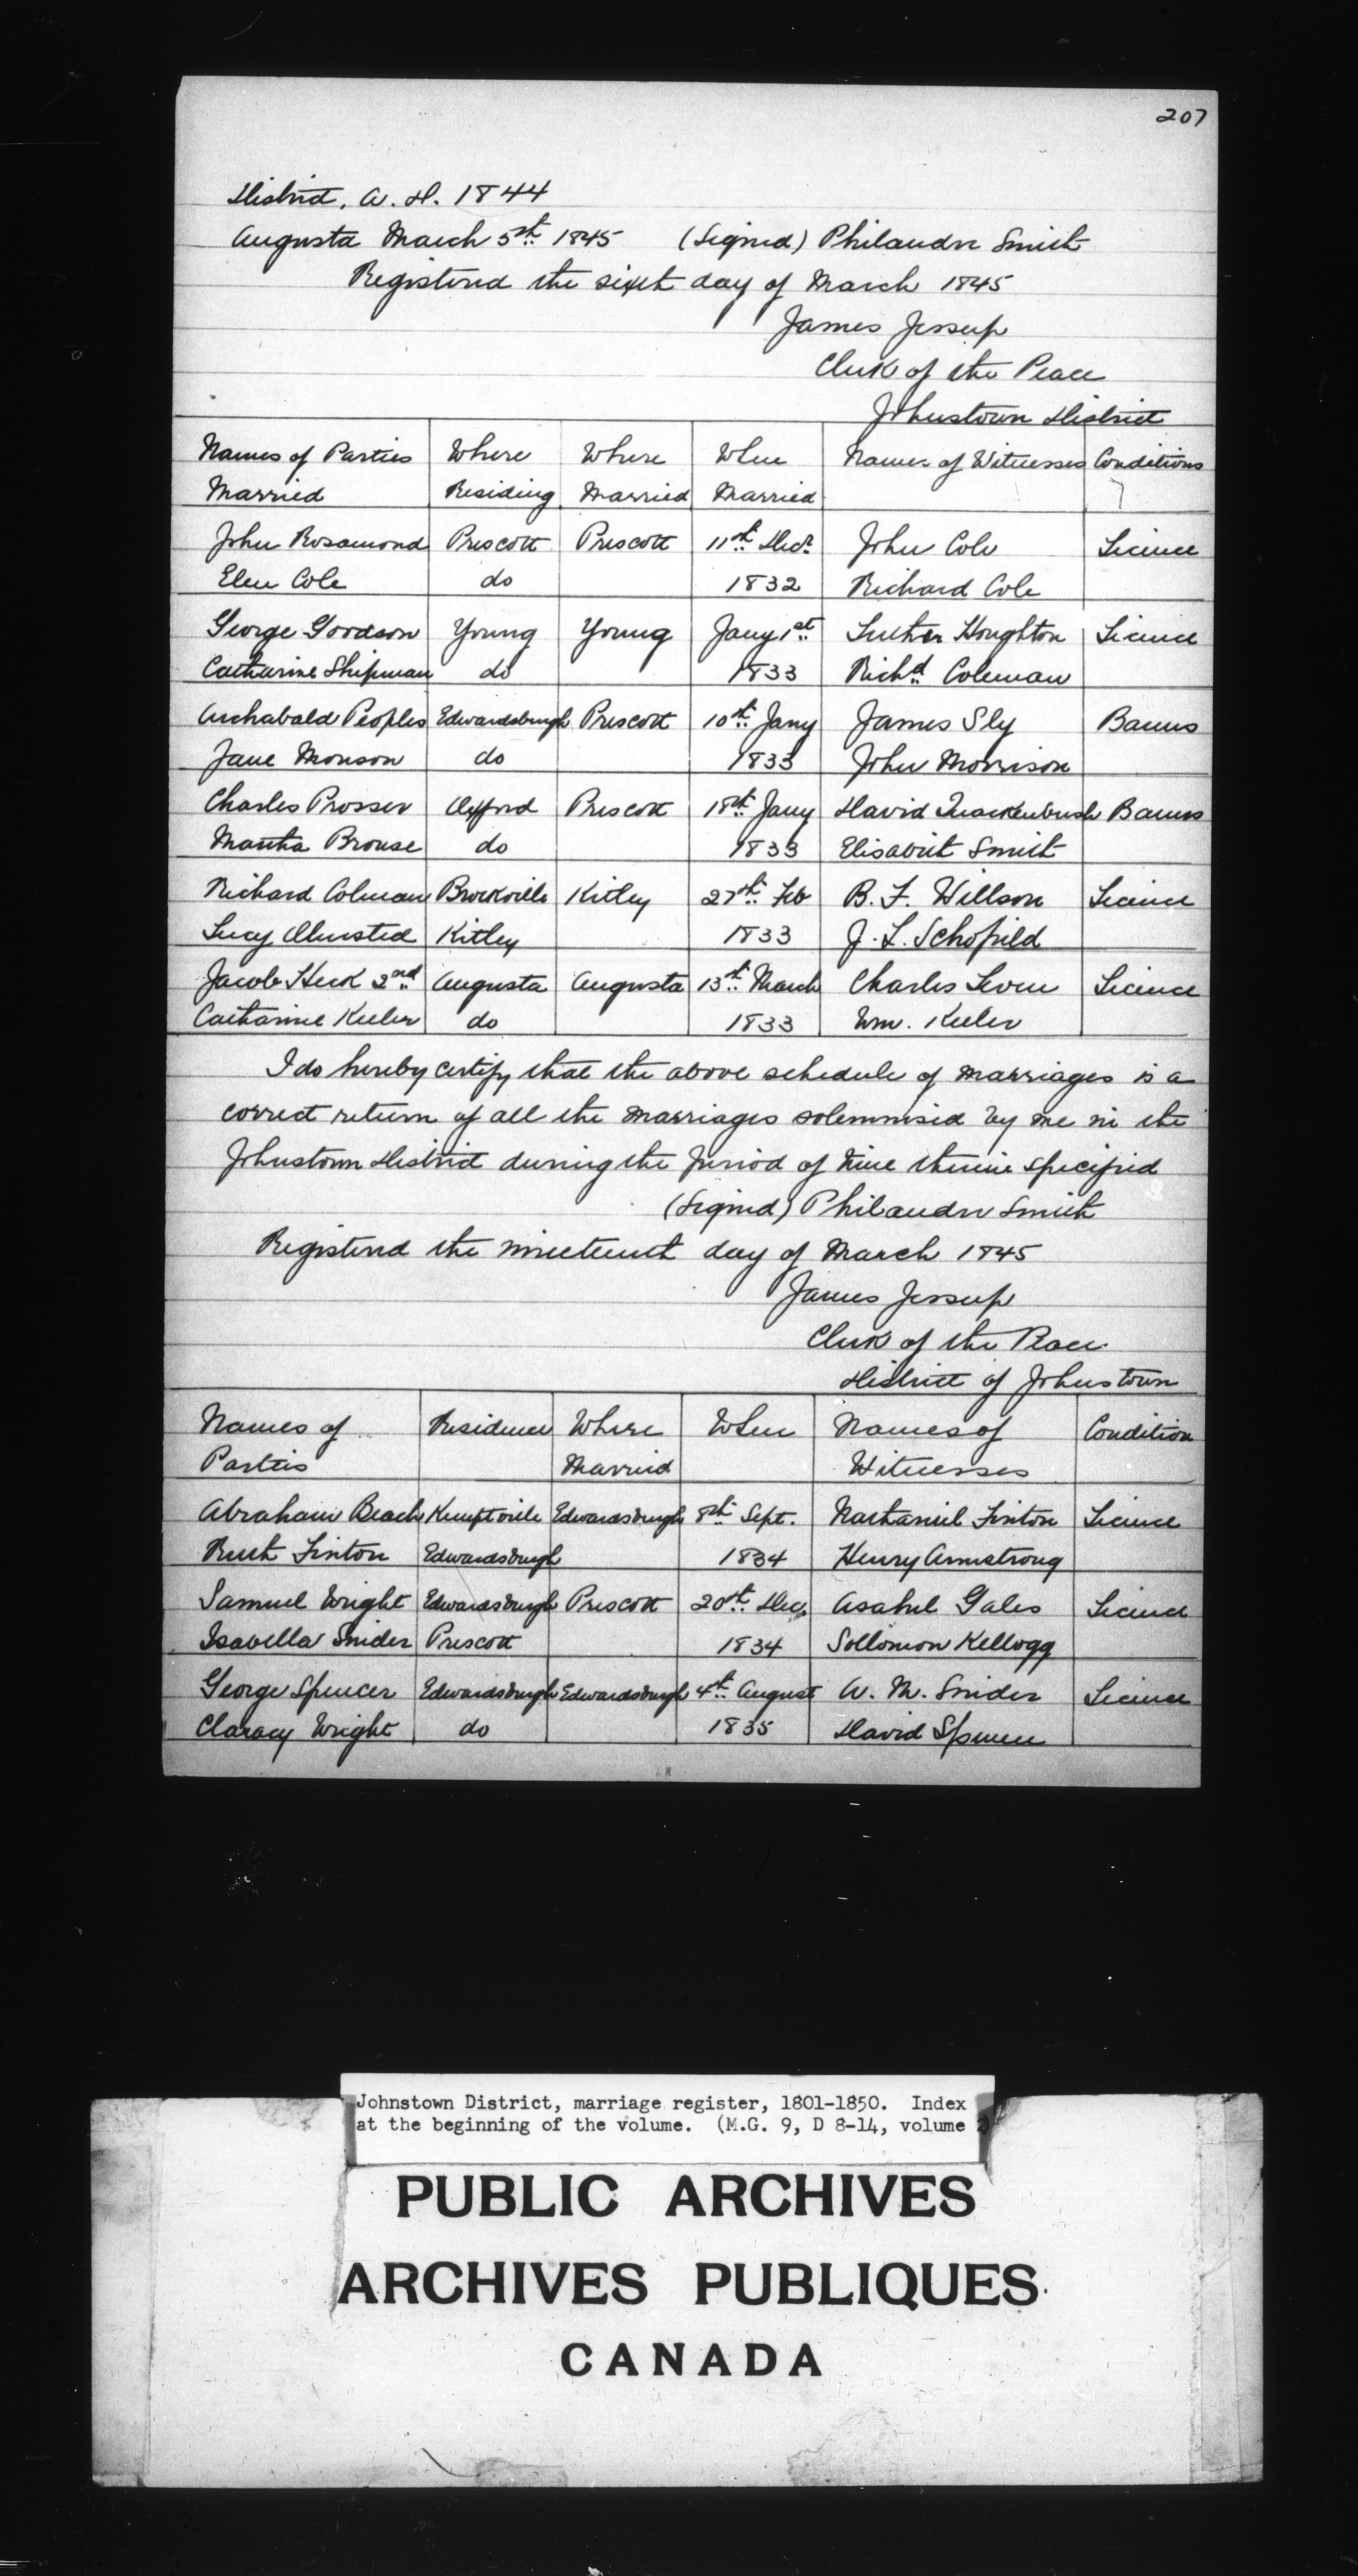 207
District, A. D. 1844
Augusta March 5th 1845 (Signed) Philander Smith
Registered the sixth day of March 1845
James Jessup
Clerk of the Peace
Johnstown District
Names of Parties Where Where When Names of Witnesses Conditions
Married Residing Married Married
John Rosamond Prescott Prescott 11th Decr John Cole Licence
Elen Cole do 1832 Richard Cole
George Goodson Young Young Jany 1st Luther Houghton Licence
Catharine Shipman do 1833 Richd Coleman
Archabald Peoples Edwardsburgh Prescott 10th Jany James Sly Banns
Jane Monson do 1833 John Morrison
Charles Prosser Oxford Prescott 18th Jany David Quackenbush Banns
Martha Brouse do 1833 Elisabeth Smith
Richard Colman Brockville Kitley 27th Feb B. F. Willson Licence
Lucy Olmsted Kitley 1833 J. L. Schofield
Jacob Heck 2nd Augusta Augusta 13th March Charles Licence
Catharine Keeler do 1833 Wm. Keeler
I do hereby certify that the above schedule of marriages is a
correct return of all the marriages solemnised by me in the
Johnstown District during the period of time therein specified
(Signed) Philander Smith
Registered the nineteenth day of March 1845
James Jessup
Clerk of the Peace
District of Johnstown
Names of Residence Where When Names of Condition
Parties Married Witnesses
Abraham Beach Kemptville Edwardsburgh 8th Sept. Nathaniel Finton Licence
Ruth Finton Edwardsburgh 1834 Henry Armstrong
Samuel Wright Edwardsburgh Prescott 20th Dec. Asahel Gales Licence
Isabella Snider Prescott 1834 Sollomon Kellogg
George Spencer Edwardsburgh Edwardsburgh 4th August A. M. Snider Licence
Claracy Wright do 1835 David Spencer
Johnstown District, marriage register, 1801-1850. Index
at the beginning of the volume. (M.G. 9, D 8-14, volume
PUBLIC ARCHIVES
ARCHIVES PUBLIQUES
CANADA